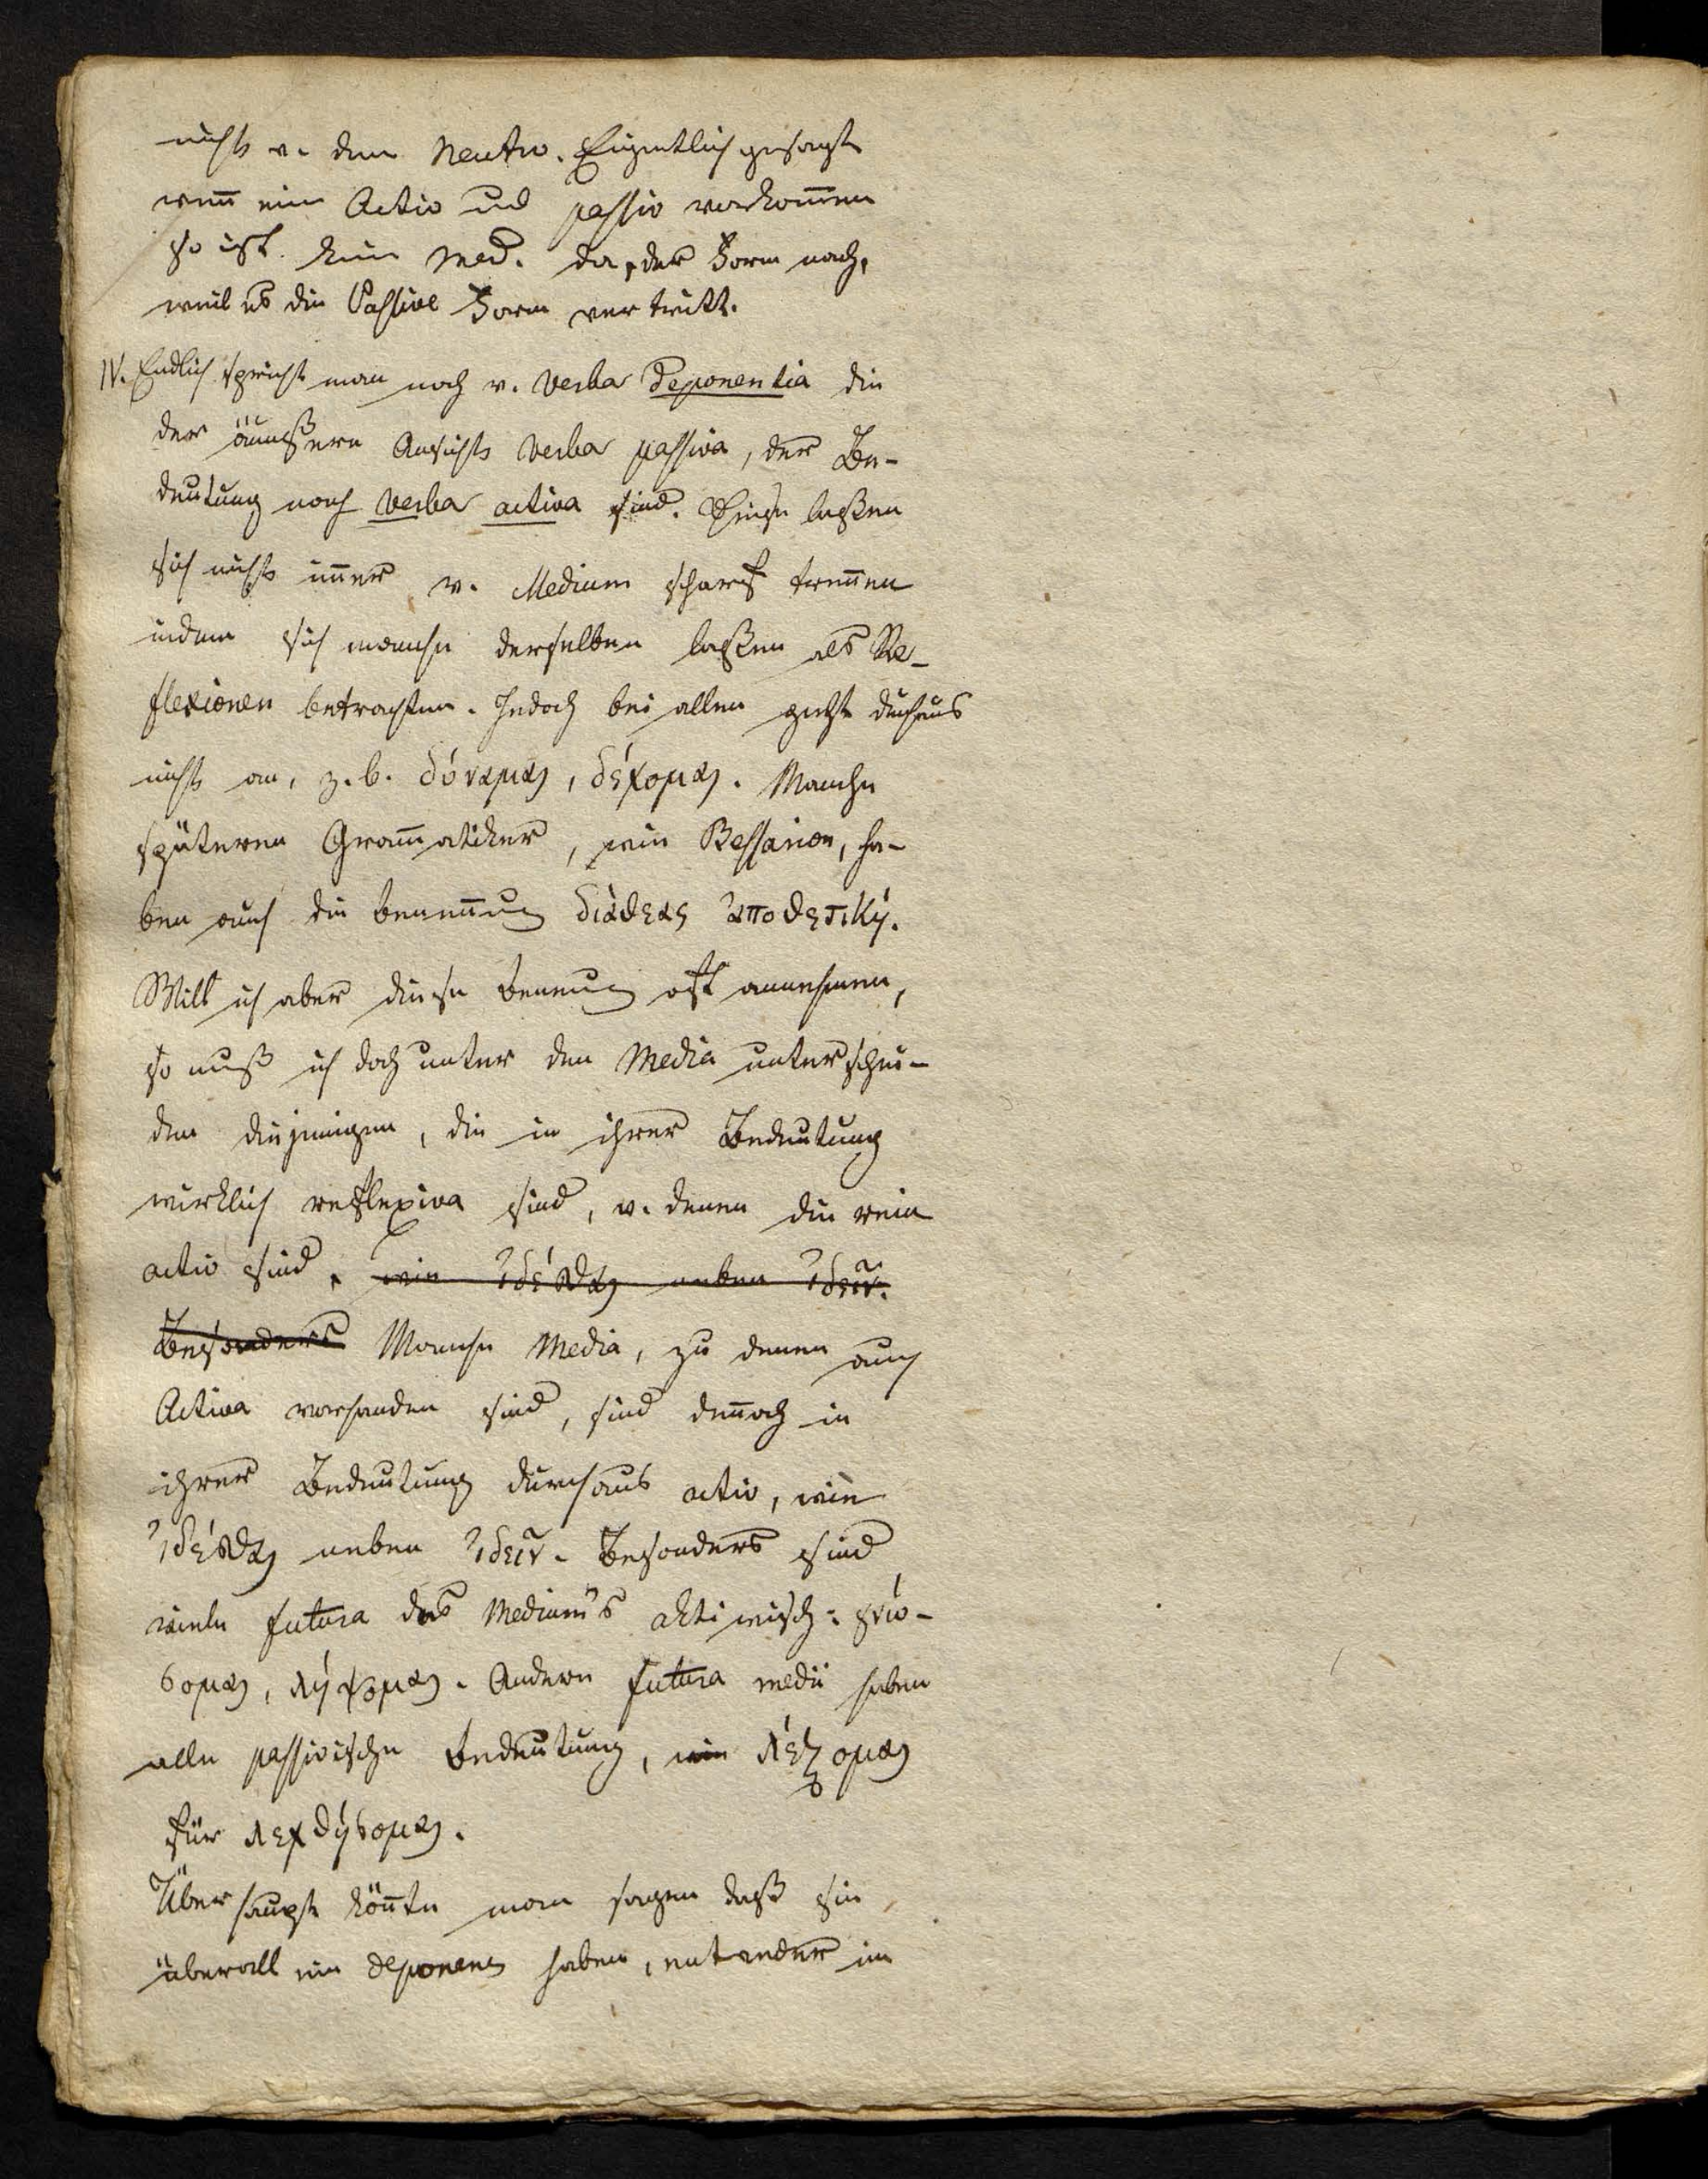 nichts v. dem Neutro. Eigentlich gesagt
weñ ein Activ und passiv vorkom̃en
so ist kein Med. da, der Form nach,
weil es die Passive Form vertritt.
IV. Endlich spricht man noch v. Verba Deponentia die
der äußern Ansicht Verba passiva, der Be-
deutung nach Verba activa sind. Diese laßen
sich nicht im̃er v. Medium scharf treñen
indem sich manche derselben laßen als Re-
flexionen betrachten. Jedoch bei allen geht durchaus
nicht an, z. b. δύναμαι, δέχομαι. Manche
späteren Gram̃atiker, wie Bessarion, ha-
ben auch die Beneñung διάθεσις ἀποθετική.
Will ich aber diese Benenung oft annehmen,
so muß ich doch unter den Media unterschei-
den diejenigen, die in ihrer Bedeutung
wirklich reflexiva sind, v. denen die rein
activ sind, wie ἰδέσθαι neben ἰδεῖν.
Besonders Manche Media, zu denen auch
Activa vorhanden sind, sind deñoch in
ihrer Bedeutung durchaus activ, wie
ἰδέσθαι neben ἰδεῖν. Besonders sind
viele futura des Medium's aktivisch: γνώ-
σομαι, λήψομαι. Andere futura medii haben
alle passivische Bedeutung, wie λέξομαι
für λεχθήσομαι.
Überhaupt köñte man sagen daß sie
überall ein deponens haben, entweder im